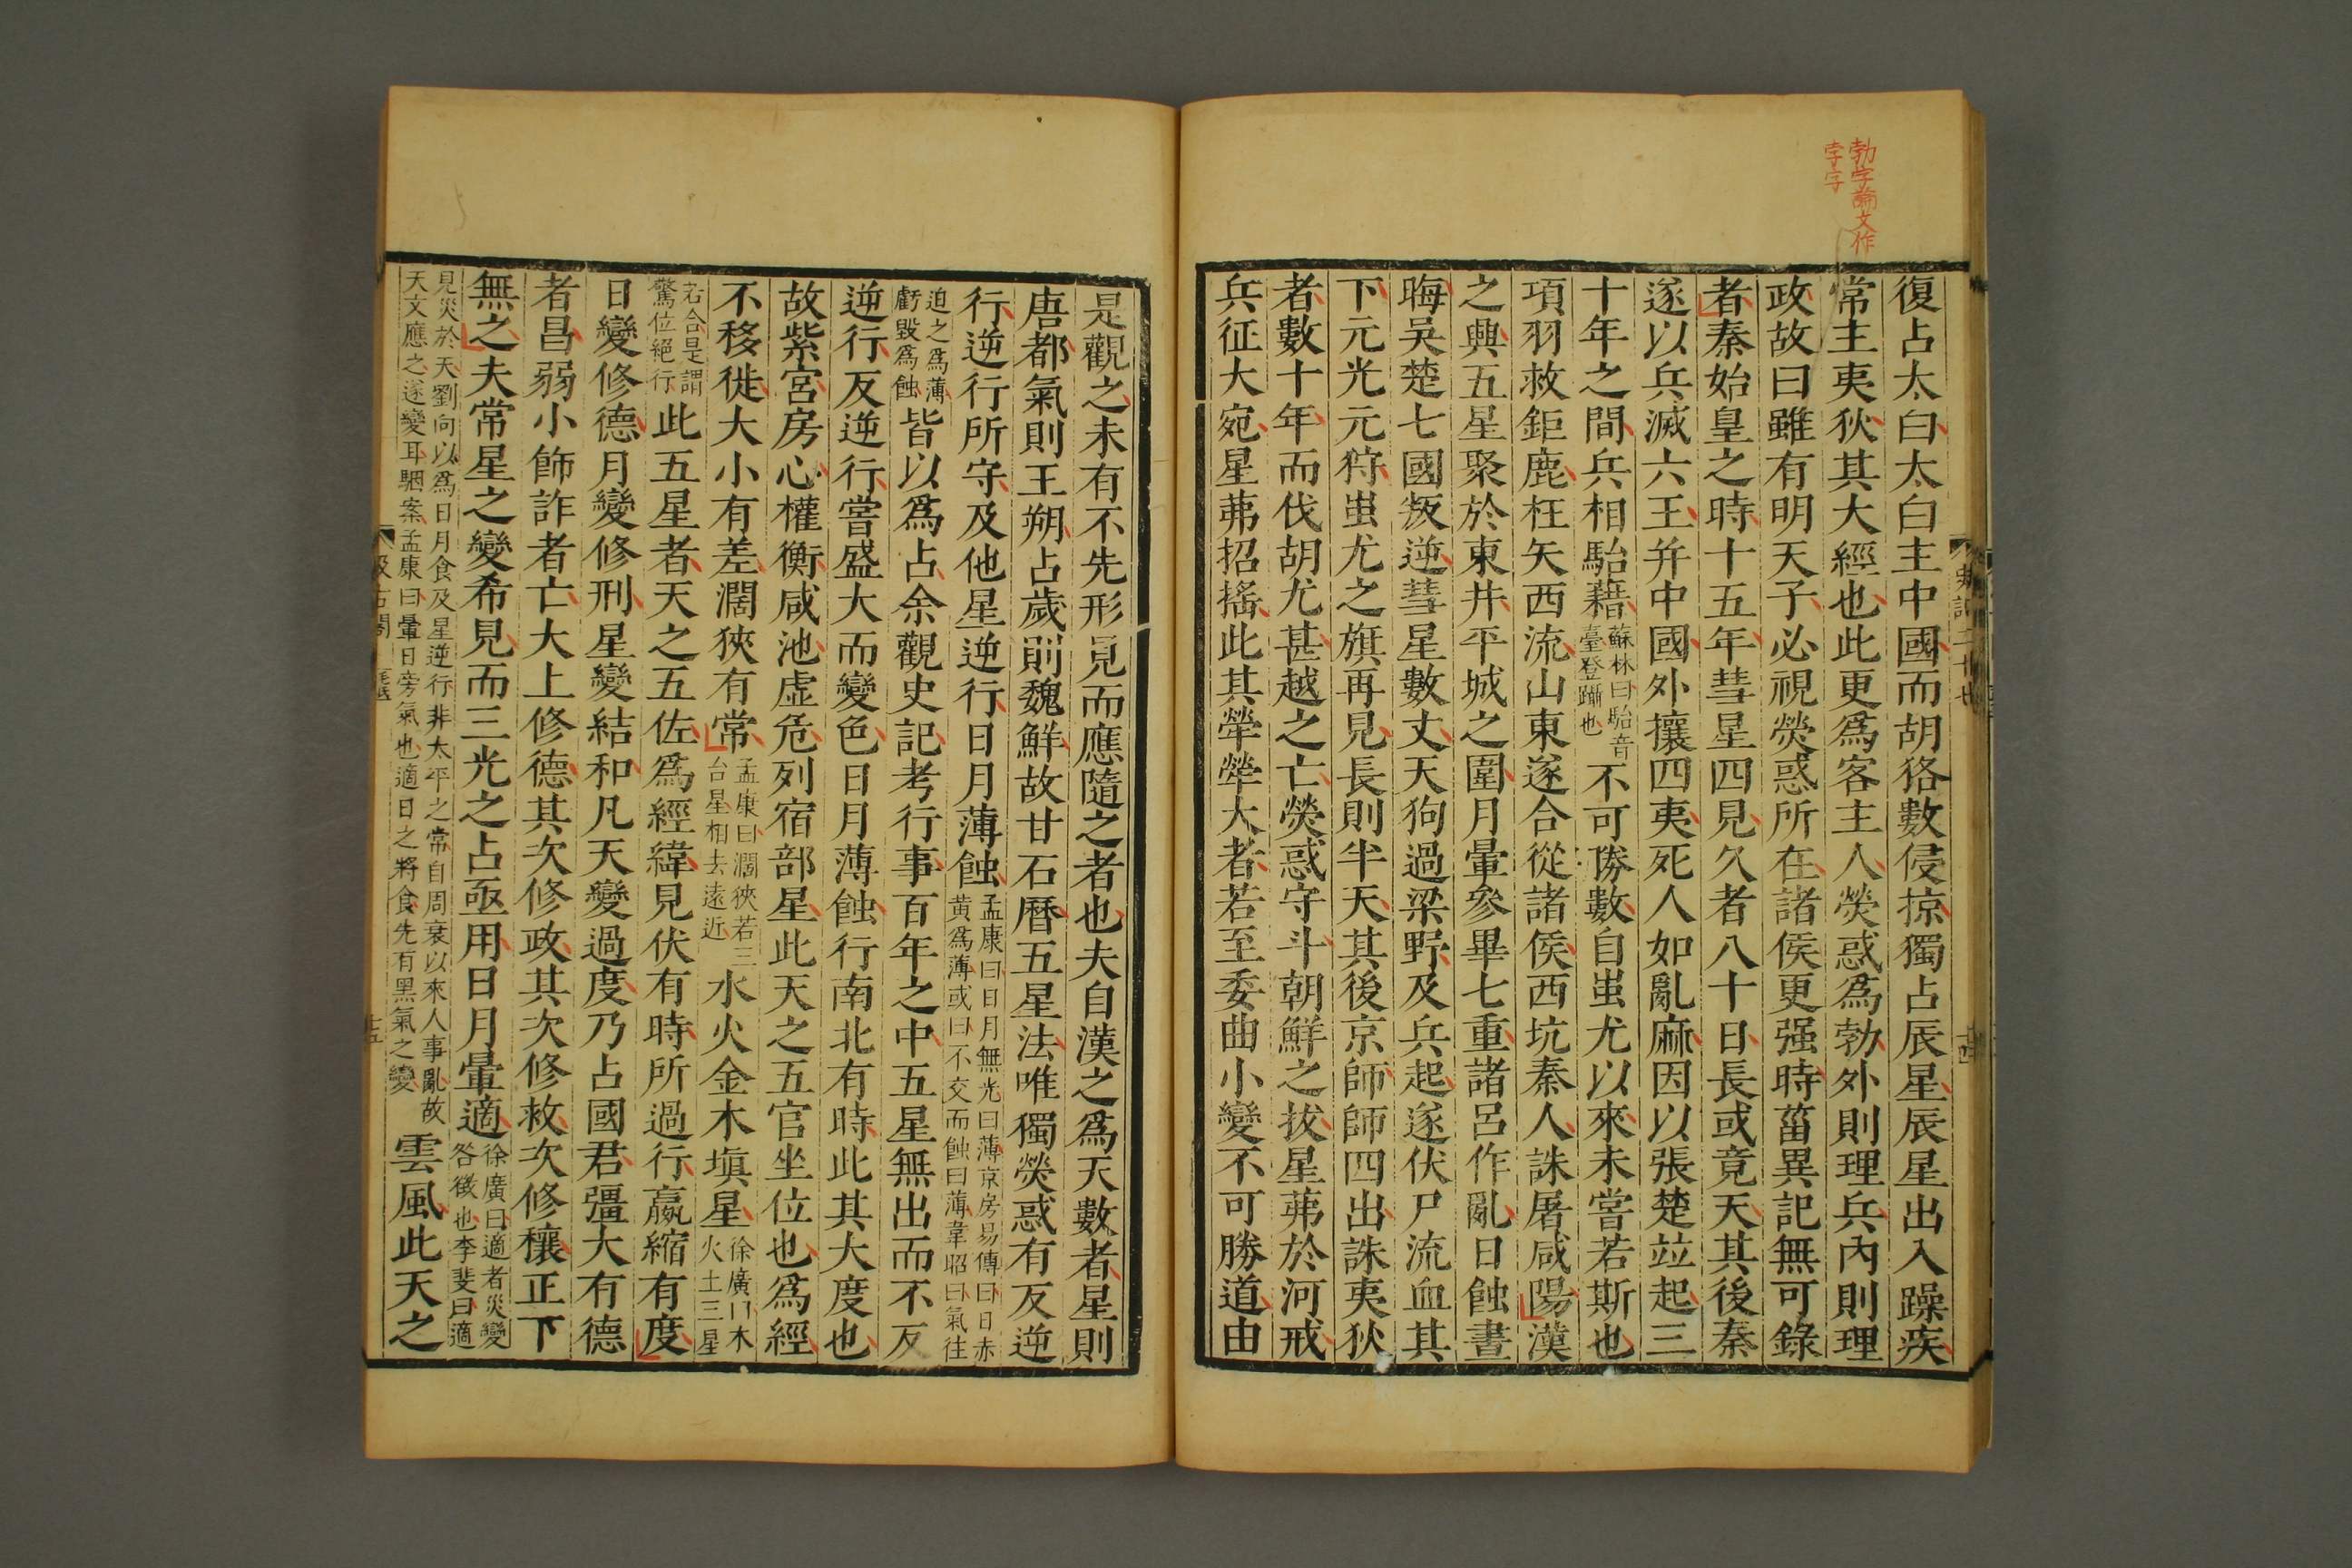 勃字論文作
孛字
復占太白太白主中國而胡狢數侵掠獨占辰星辰星出入躁疾
常主夷狄其大經也此更爲客主人熒惑爲勃外則理兵內則理
政故曰雖有明天子必視熒惑所在諸侯更强時菑異記無可錄
者秦始皇之時十五年彗星四見久者八十日長或竟天其後秦
遂以兵滅六王并中國外攘四夷死人如亂麻因以張楚竝起三
十年之間兵相駘藉蘇林曰駘音臺登躡也不可勝數自蚩尤以來未嘗若斯也
項羽救鉅鹿枉矢西流山東遂合從諸侯西坑秦人誅屠咸陽漢
之興五星聚於東井平城之圍月暈參畢七重諸呂作亂日蝕晝
晦吳楚七國叛逆彗星數丈天狗過梁野及兵起遂伏尸流血其
下元光元狩蚩尤之旗再見長則半天其後京師師四出誅夷狄
者數十年而伐胡尤甚越之亡熒惑守斗朝鮮之拔星茀於河戒
兵征大宛星茀招搖此其犖犖大者若至委曲小變不可勝道由
是觀之未有不先形見而應隨之者也夫自漢之爲天數者星則
唐都氣則王朔占歲則魏鮮故甘石曆五星法唯獨熒惑有反逆
行逆行所守及他星逆行日月薄蝕孟康曰日月無光曰薄京房易傳曰日赤黃爲薄或曰不交而蝕曰薄韋昭曰氣往
迫之爲薄虧毀爲蝕皆以爲占余觀史記考行事百年之中五星無出而不反
逆行反逆行嘗盛大而變色日月薄蝕行南北有時此其大度也
故紫宮房心權衡咸池虛危列宿部星此天之五官坐位也爲經
不移徙大小有差濶狹有常孟康曰濶狹若三台星相去遠近水火金木塡星徐廣曰木火土三星
若合是謂驚位絕行此五星者天之五佐爲經緯見伏有時所過行嬴縮有度
日變修德月變修刑星變結和凡天變過度乃占國君彊大有德
者昌弱小飾詐者亡大上修德其次修政其次修救次修禳正下
無之夫常星之變希見而三光之占亟用日月暈適徐廣曰適者災變咎徵也李斐曰適
見災於天劉向以爲日月食及星逆行非太平之常自周衰以來人事亂故天文應之遂變耳駰案孟康曰暈日旁氣也適日之將食先有黑氣之變雲風此天之